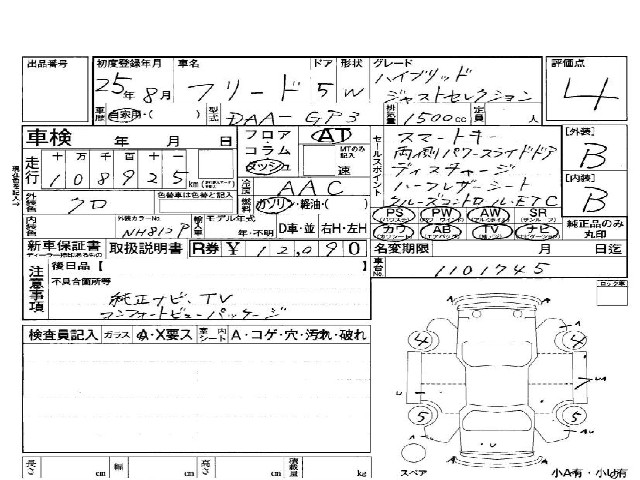 出品番号 初度登録年月 車名 ドア 形状 グレード 評価点
25年8月 フリード 5 W ハイブリッド ジャストセレクション 4
車歴 自家用・( ) 型式 DAA-GP3 排気量 1500cc 定員 人
車検 年 月 日 フロア・コラム・ダッシュ AT MTのみ記入 速
走行 十 万 千 百 十 一
108925 km
冷房 AAC
外装色 クロ 色替車は色替と記入 燃料 ガソリン・軽油・( )
外装カラーNo. NH812P 輸入車 モデル年式 年・不明 D車・並 右H・左H
新車保証書 取扱説明書 R券 ¥ 12,090
ディーラー捺印あるもの
セールスポイント
スマートキー
両側パワースライドドア
ディスチャージ
ハーフレザーシート
クルーズコントロール・ETC
PS PW AW SR
カワ AB TV ナビ
[外装] B
[内装] B
純正品のみ丸印
名変期限 月 日迄
車台No. 1101745
注意事項 後日品【 】
不具合箇所等
純正ナビ、TV
コンフォートビューパッケージ
検査員記入 ガラス A・X要ス 室内シート A・コゲ・穴・汚れ・破れ
ロック車
A A
4 4
A
U 7 UA
5 5
A A
U
スペア 小A有・小U有
長さ cm 幅 cm 高さ cm 積載量 kg